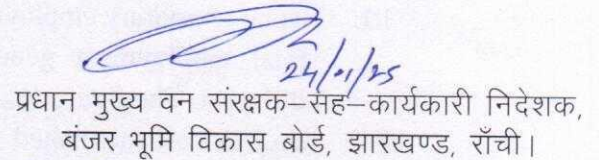 24/01/25
प्रधान मुख्य वन संरक्षक–सह–कार्यकारी निदेशक,
बंजर भूमि विकास बोर्ड, झारखण्ड, राँची।